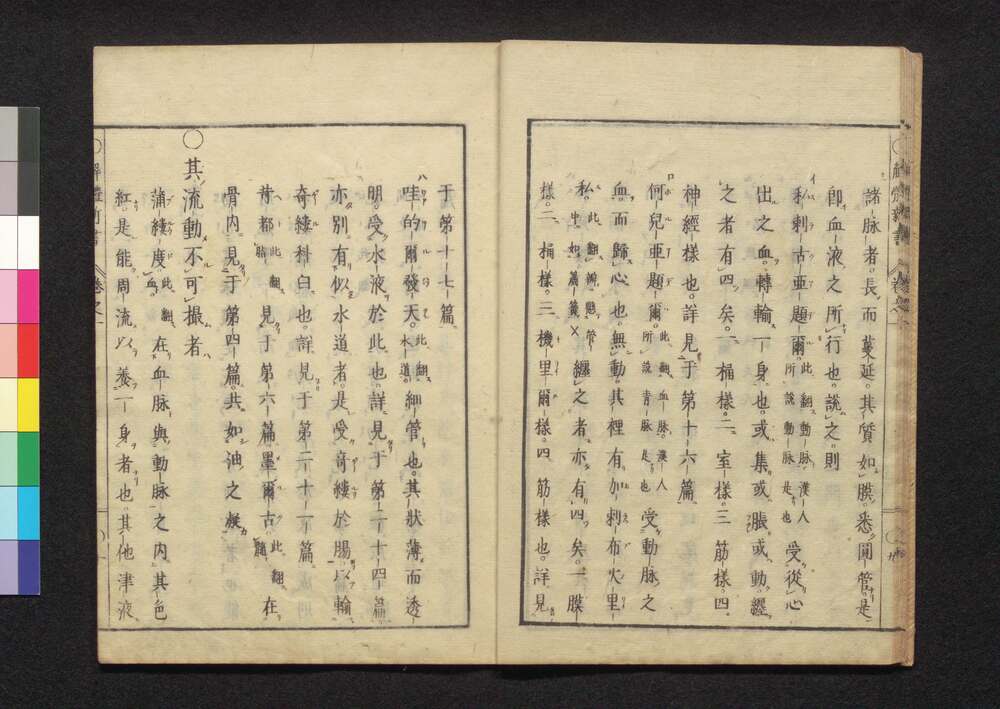 諸脉者。長而蔓延。其質如膜。悉開管。是
即血液之所行也。説之則
利刺古亜題爾。此翻動脉漢人所説動脉是也受從心
出之血。轉輸一身也。或集或脹或動。纒
之者有四矣。一桶樣。二室樣。三筋樣。四
神經樣也。詳見于第十六篇
何兒亜題爾。此翻血脉。漢人所説青脉是也受動脉之
血。而歸心也。無動。其裡有加刺布火里
私。此翻纒之者亦有四矣。一膜
樣。二桶樣。三機里爾樣。四筋樣也。詳見
于第十七篇
哇的爾發天。此翻水道細管也。其狀薄而透
明。受水液於此也。詳見于第二十四篇
亦別有似水道者。是受奇縷於腸以輸
奇縷科臼也。詳見于第二十一篇
昔都此翻脂見于第六篇。墨爾古此翻髓在
骨内。見于第四篇。共如油之凝
〇其流動不可撮者
蒲縷度此翻血在血脉與動脉之内。其色
紅。是能周流以養一身者也。其他津液